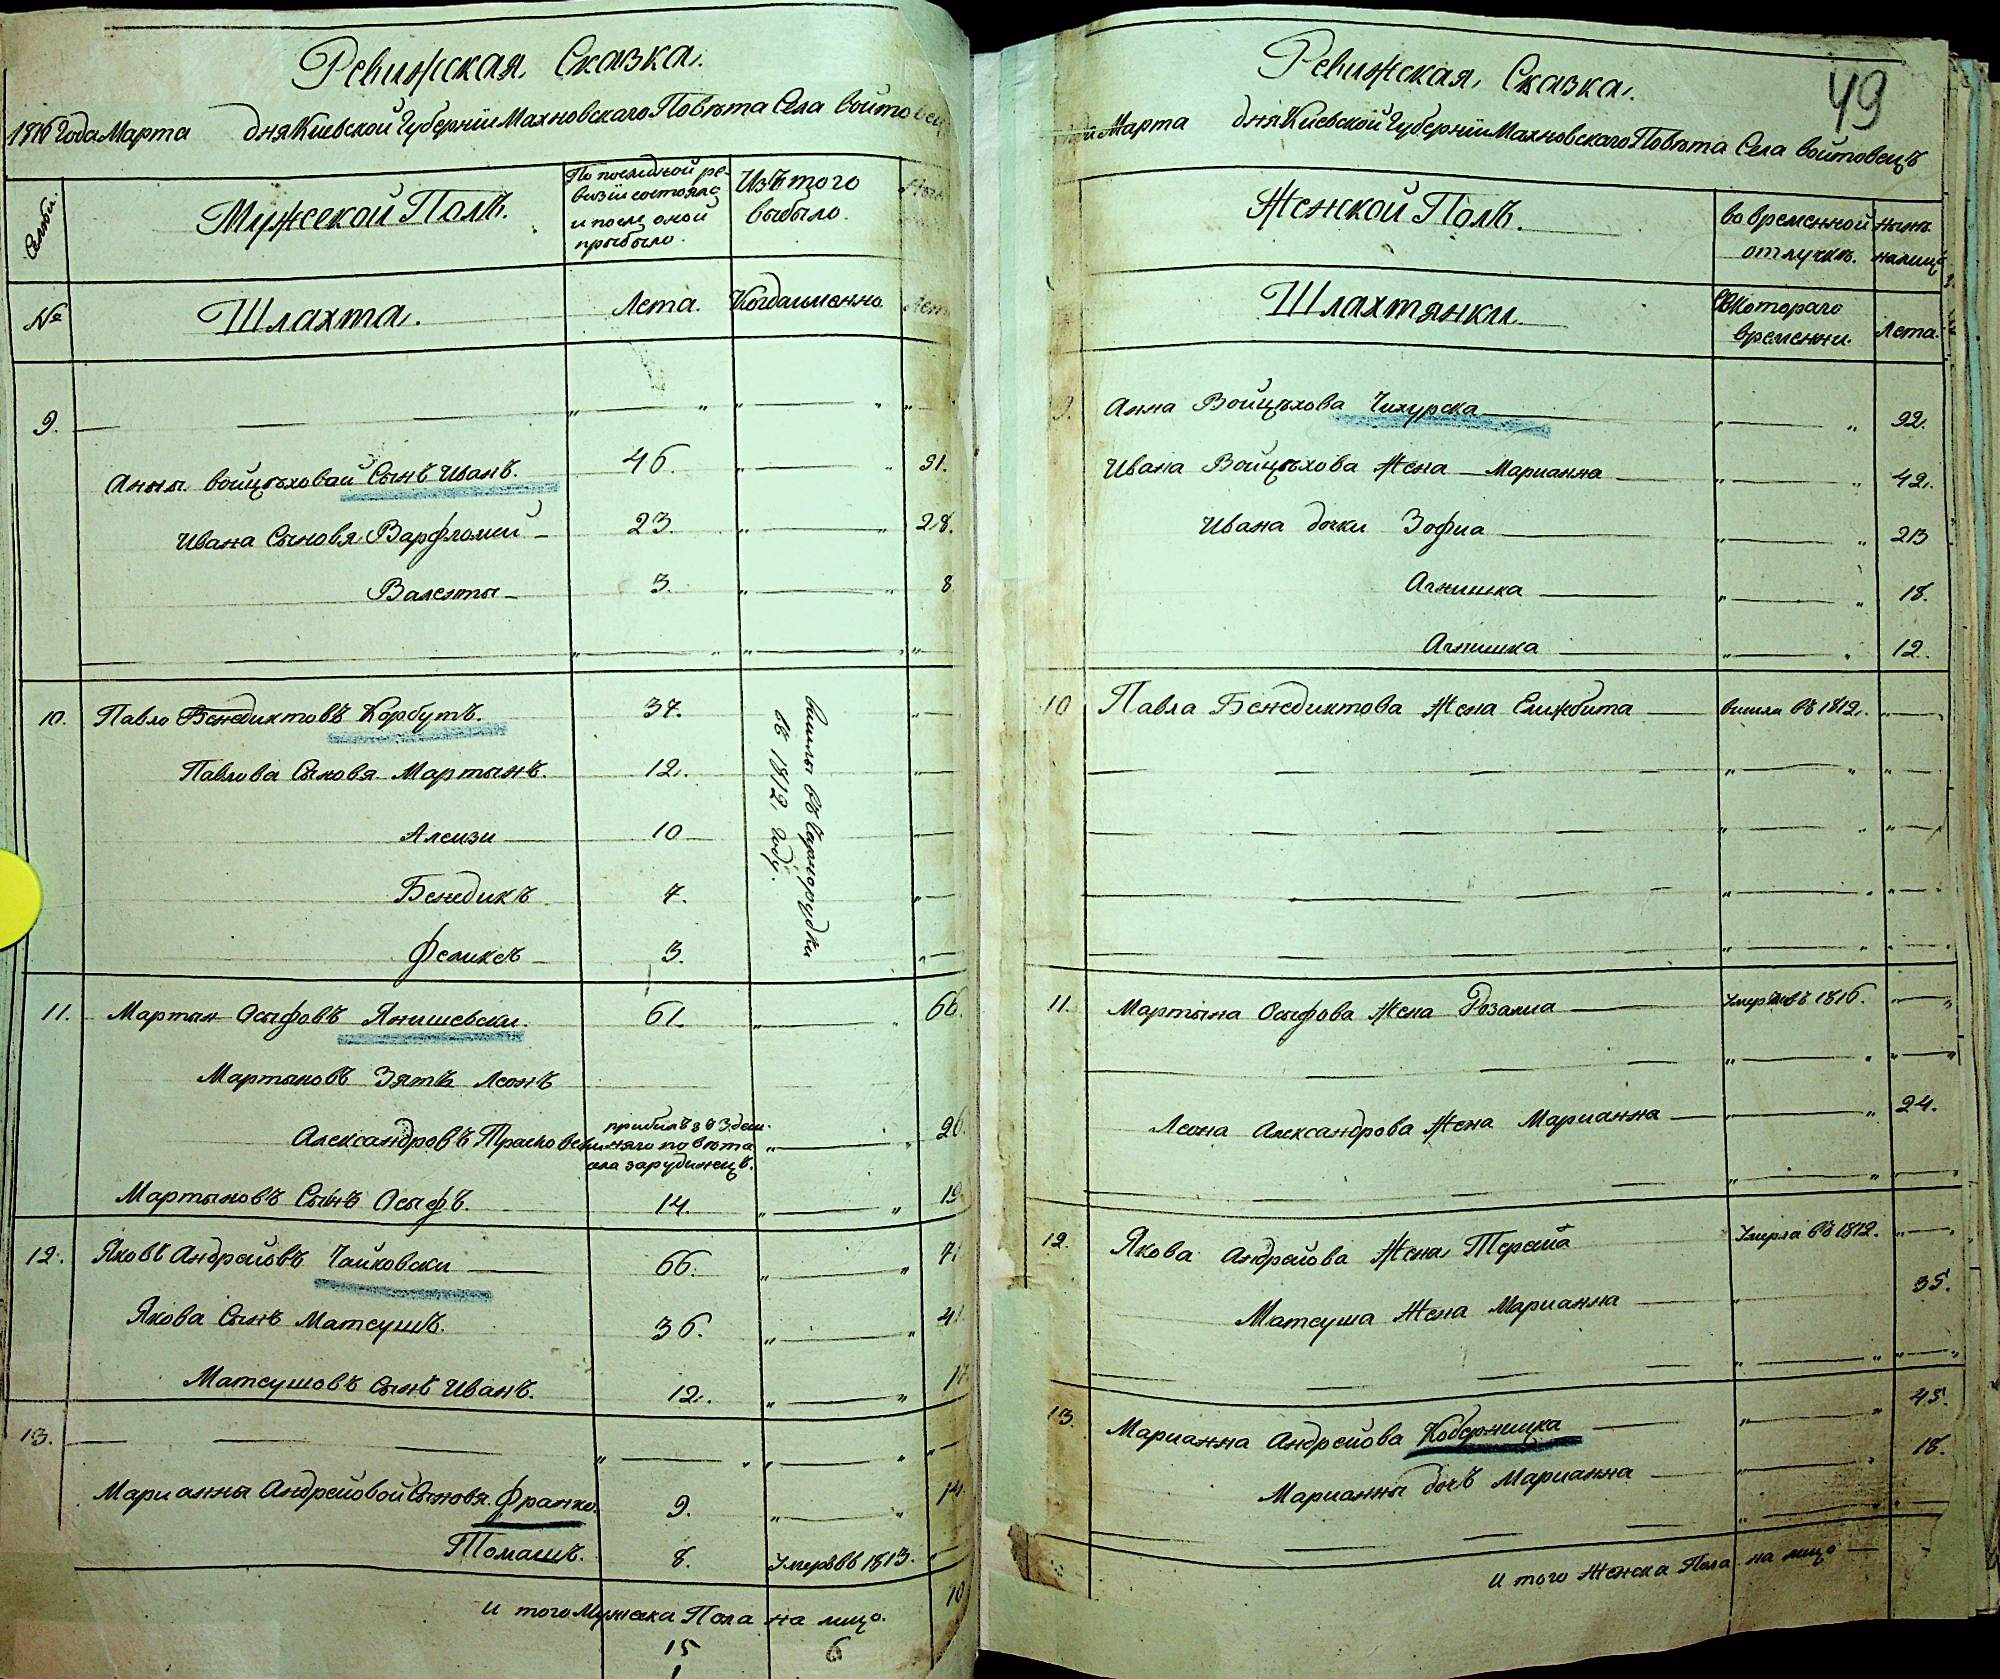 Ревижская Сказка.
1816 Года Марта дня Киевской Губернїи Махновскаго Повѣта Села Войтовец
Семьи.
Мужеской Полъ.
По последной ре-
визїи состояло
и после оной
прыбыло.
Изъ того
выбыло.
№
Шлахта.
Лета.
Когда именно
Лет
9.
Анны Войцѣховой Сынъ Иванъ. 46. 51.
Ивана Сыновя Варфломей 23. 28.
Валенты 3. 8
10. Павло Бенедиктовъ Корбутъ. 37.
Павлова Сыновя Мартынъ. 12.
Алеизи 10
Бенедикъ 7.
Феликсъ 3.
вышлы въ Сарнорудки
въ 1812 году.
11. Мартын Осыфовъ Янишевски. 61. 66.
Мартыновъ Зять Леонъ
Александровъ
прибилъ з Здеш-
няго повѣта
села зарубинецъ.
26.
Мартыновъ Сынъ Осыфъ. 14. 19
12. Яковъ Андрейовъ Чайковски 66. 71
Якова Сынъ Матеушъ. 36. 41
Матеушовъ Сынъ Иванъ. 12. 17
13.
Марианны Андрейовой Сыновя Франко. 9. 14.
Томашъ. 8. Умеръ въ 1813.
И того Мужеска Пола на лицо. 10
15 6
Ревижская Сказка.
49
Марта дня Киевской Губернїи Махновскаго Повѣта Села Войтовецъ
Женской Полъ.
во временной
отлучке.
нынѣ
налицо
Шлахтянки.
Съ котораго
времени.
Лета.
9. Анна Войцѣхова Чихурска 92.
Ивана Войцѣхова Жена Марианна 42.
Ивана дочки Зофиа 23
Агнишка 18.
Агнишка 12.
10 Павла Бенедиктова Жена Елижбита вишла въ 1812.
11. Мартына Осыфова Жена Розалиа 1816.
Леона Александрова Жена Марианна 24.
12. Якова Андрейова Жена Тереса Умерла въ 1812.
Матеуша Жена Марианна 35.
13. Марианна Андрейова Коберницка 45.
Марианны дочъ Марианна 18.
И того Женска Пола на лицо